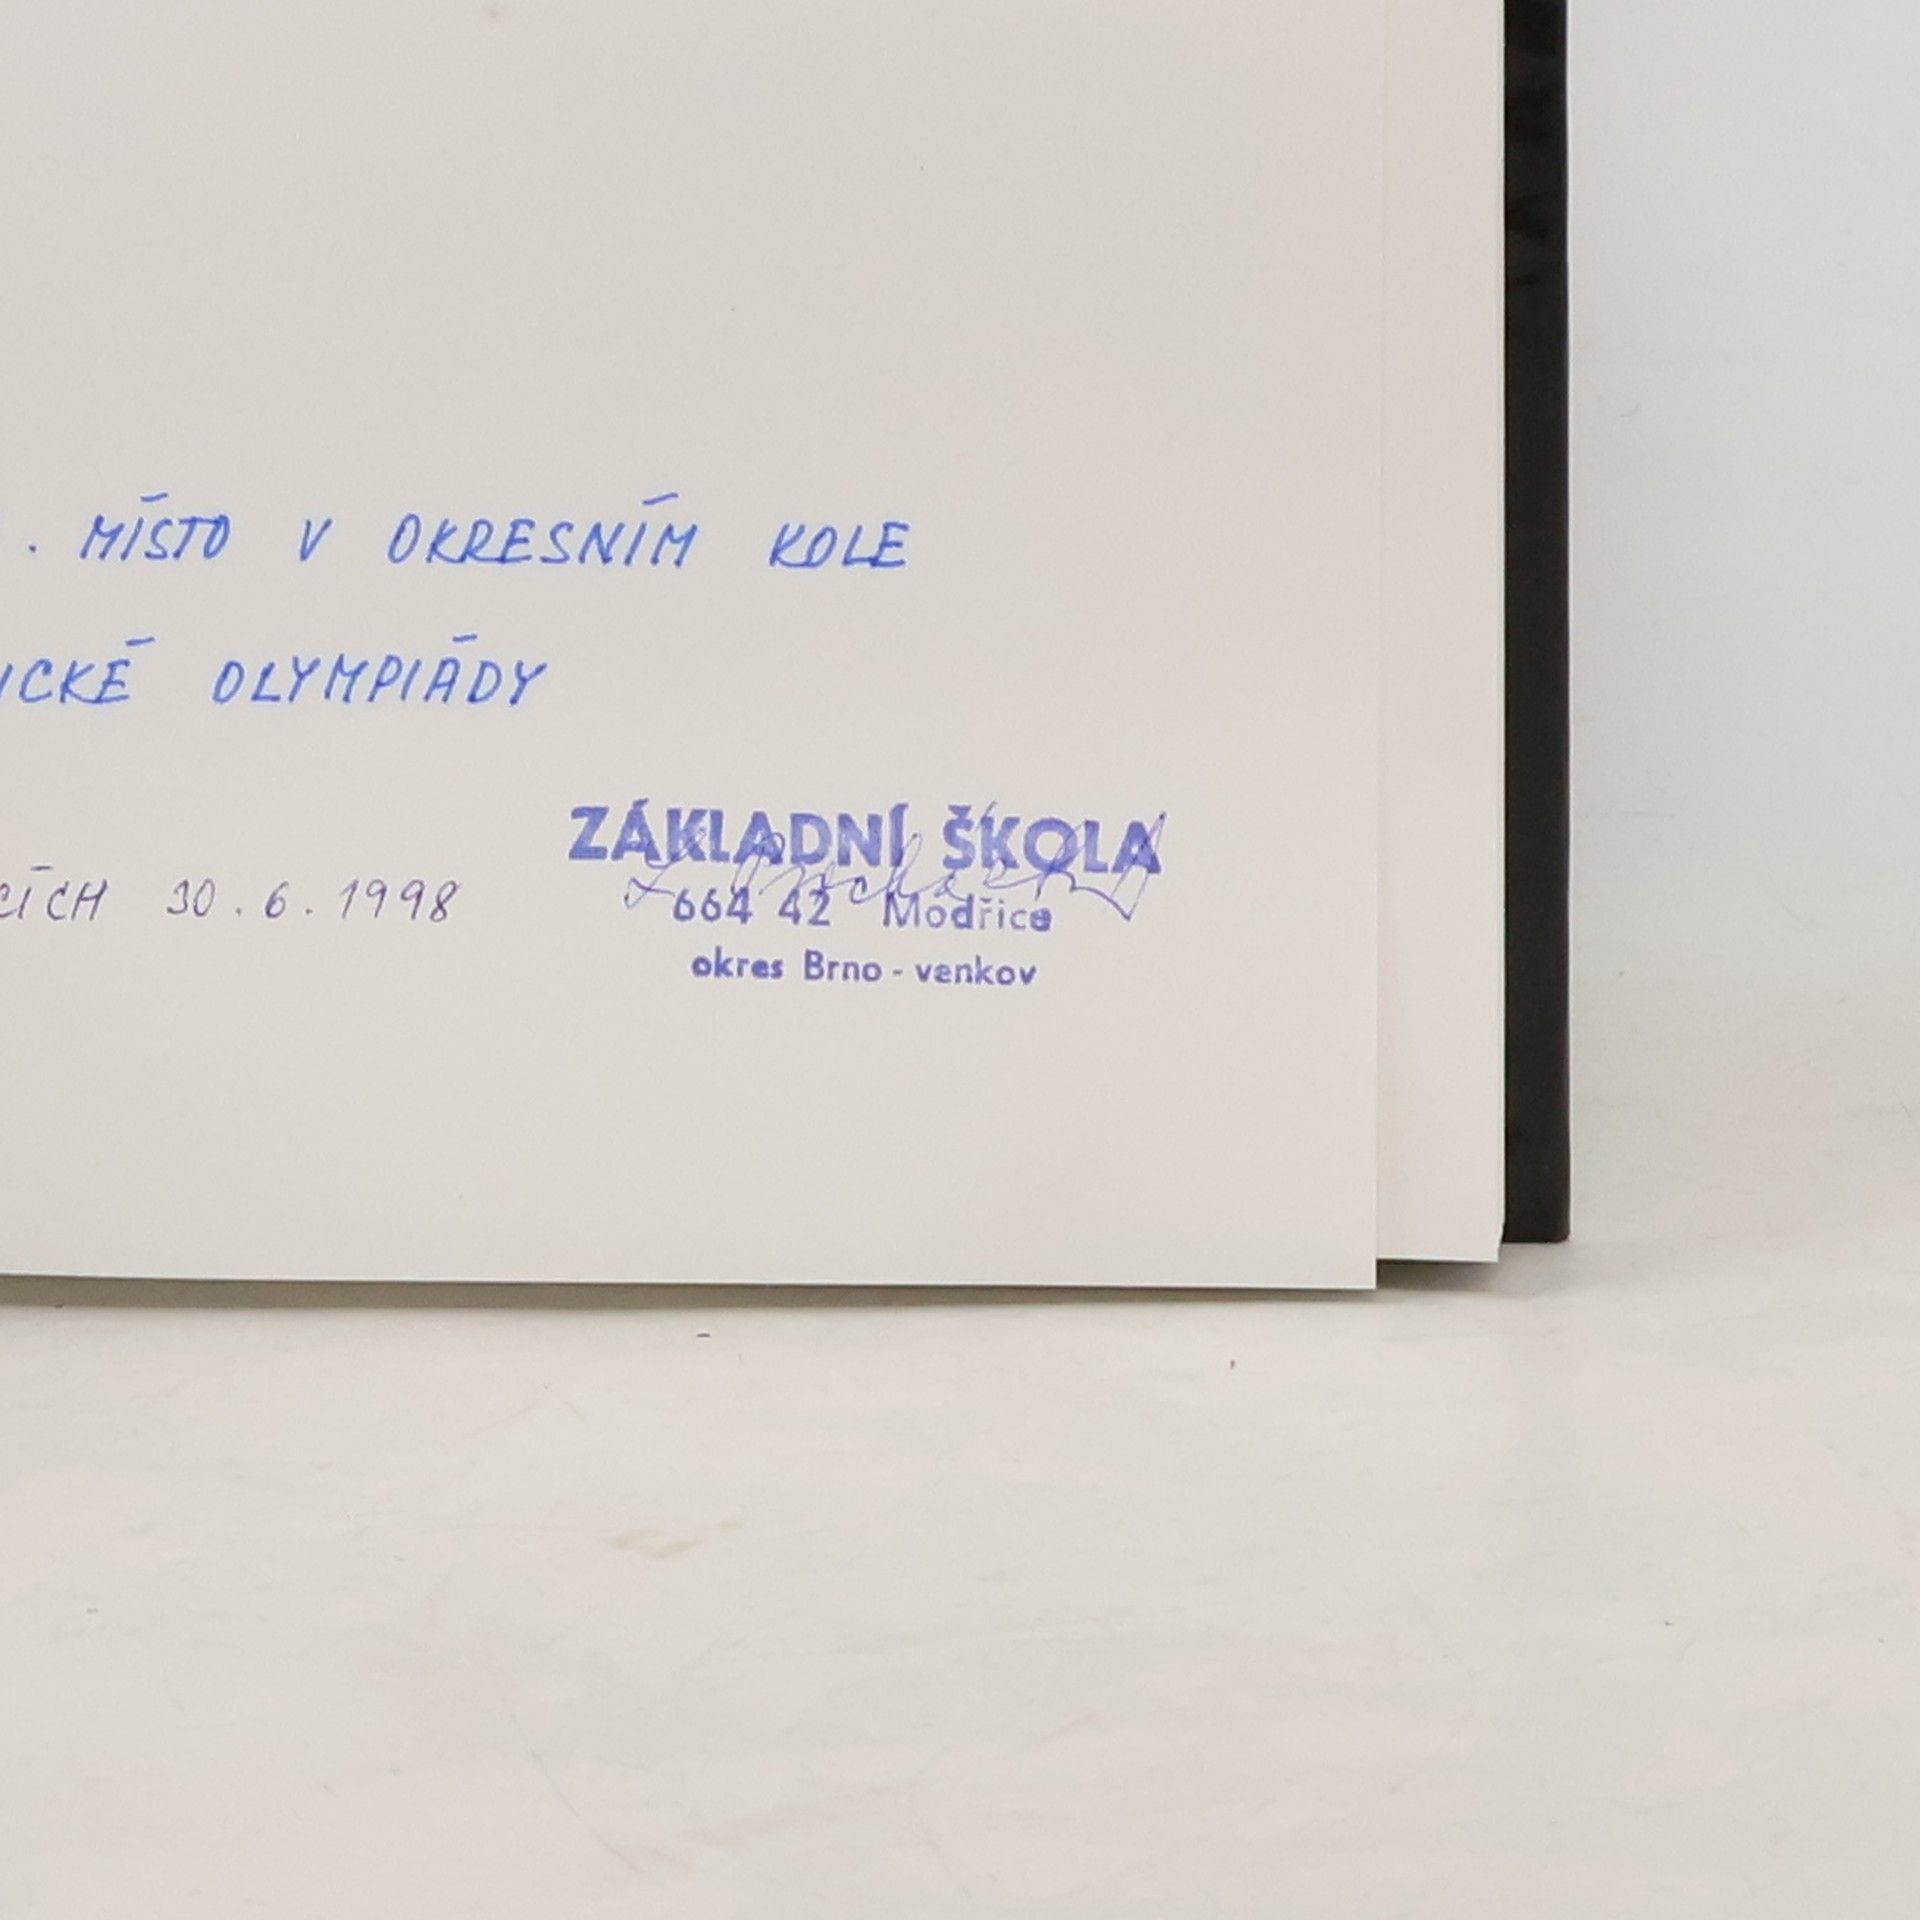 . MÍSTO V OKRESNÍM KOLE
ICKÉ OLYMPIÁDY
CÍCH 30.6.1998
ZÁKLADNÍ ŠKOLA
664 42 Modřice
okres Brno - venkov